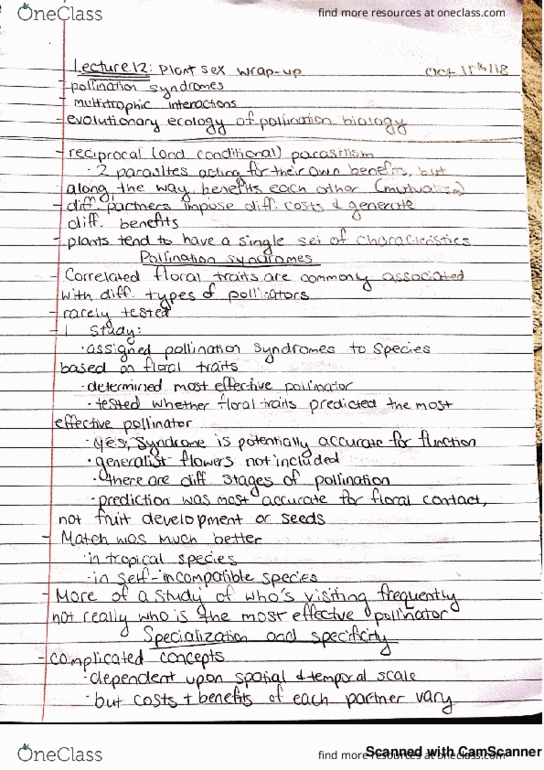 OneClass
find more resources at oneclass.com
Lecture 12: Plant sex wrap-up Oct 11th/18
- pollination syndromes
- multitrophic interactions
- evolutionary ecology of pollination biology
- reciprocal (and conditional) parasitism
· 2 parasites acting for their own benefits, but
along the way, benefits each other (mutualism)
- diff. partners impose diff. costs & generate
diff. benefits
- plants tend to have a single set of characteristics
Pollination syndromes
- Correlated floral traits are commonly associated
with diff. types of pollinators
- rarely tested
- 1 study:
· assigned pollination syndromes to species
based on floral traits
· determined most effective pollinator
· tested whether floral traits predicted the most
effective pollinator
· yes, syndrome is potentially accurate for function
· generalist flowers not included
· there are diff stages of pollination
· prediction was most accurate for floral contact,
not fruit development or seeds
- Match was much better
· in tropical species
· in self-incompatible species
- More of a study of who's visiting frequently
not really who is the most effective pollinator
Specialization and specificity
- complicated concepts
· dependent upon spatial & temporal scale
· but costs + benefits of each partner vary
OneClass
find more resources at oneclass.com
Scanned with CamScanner